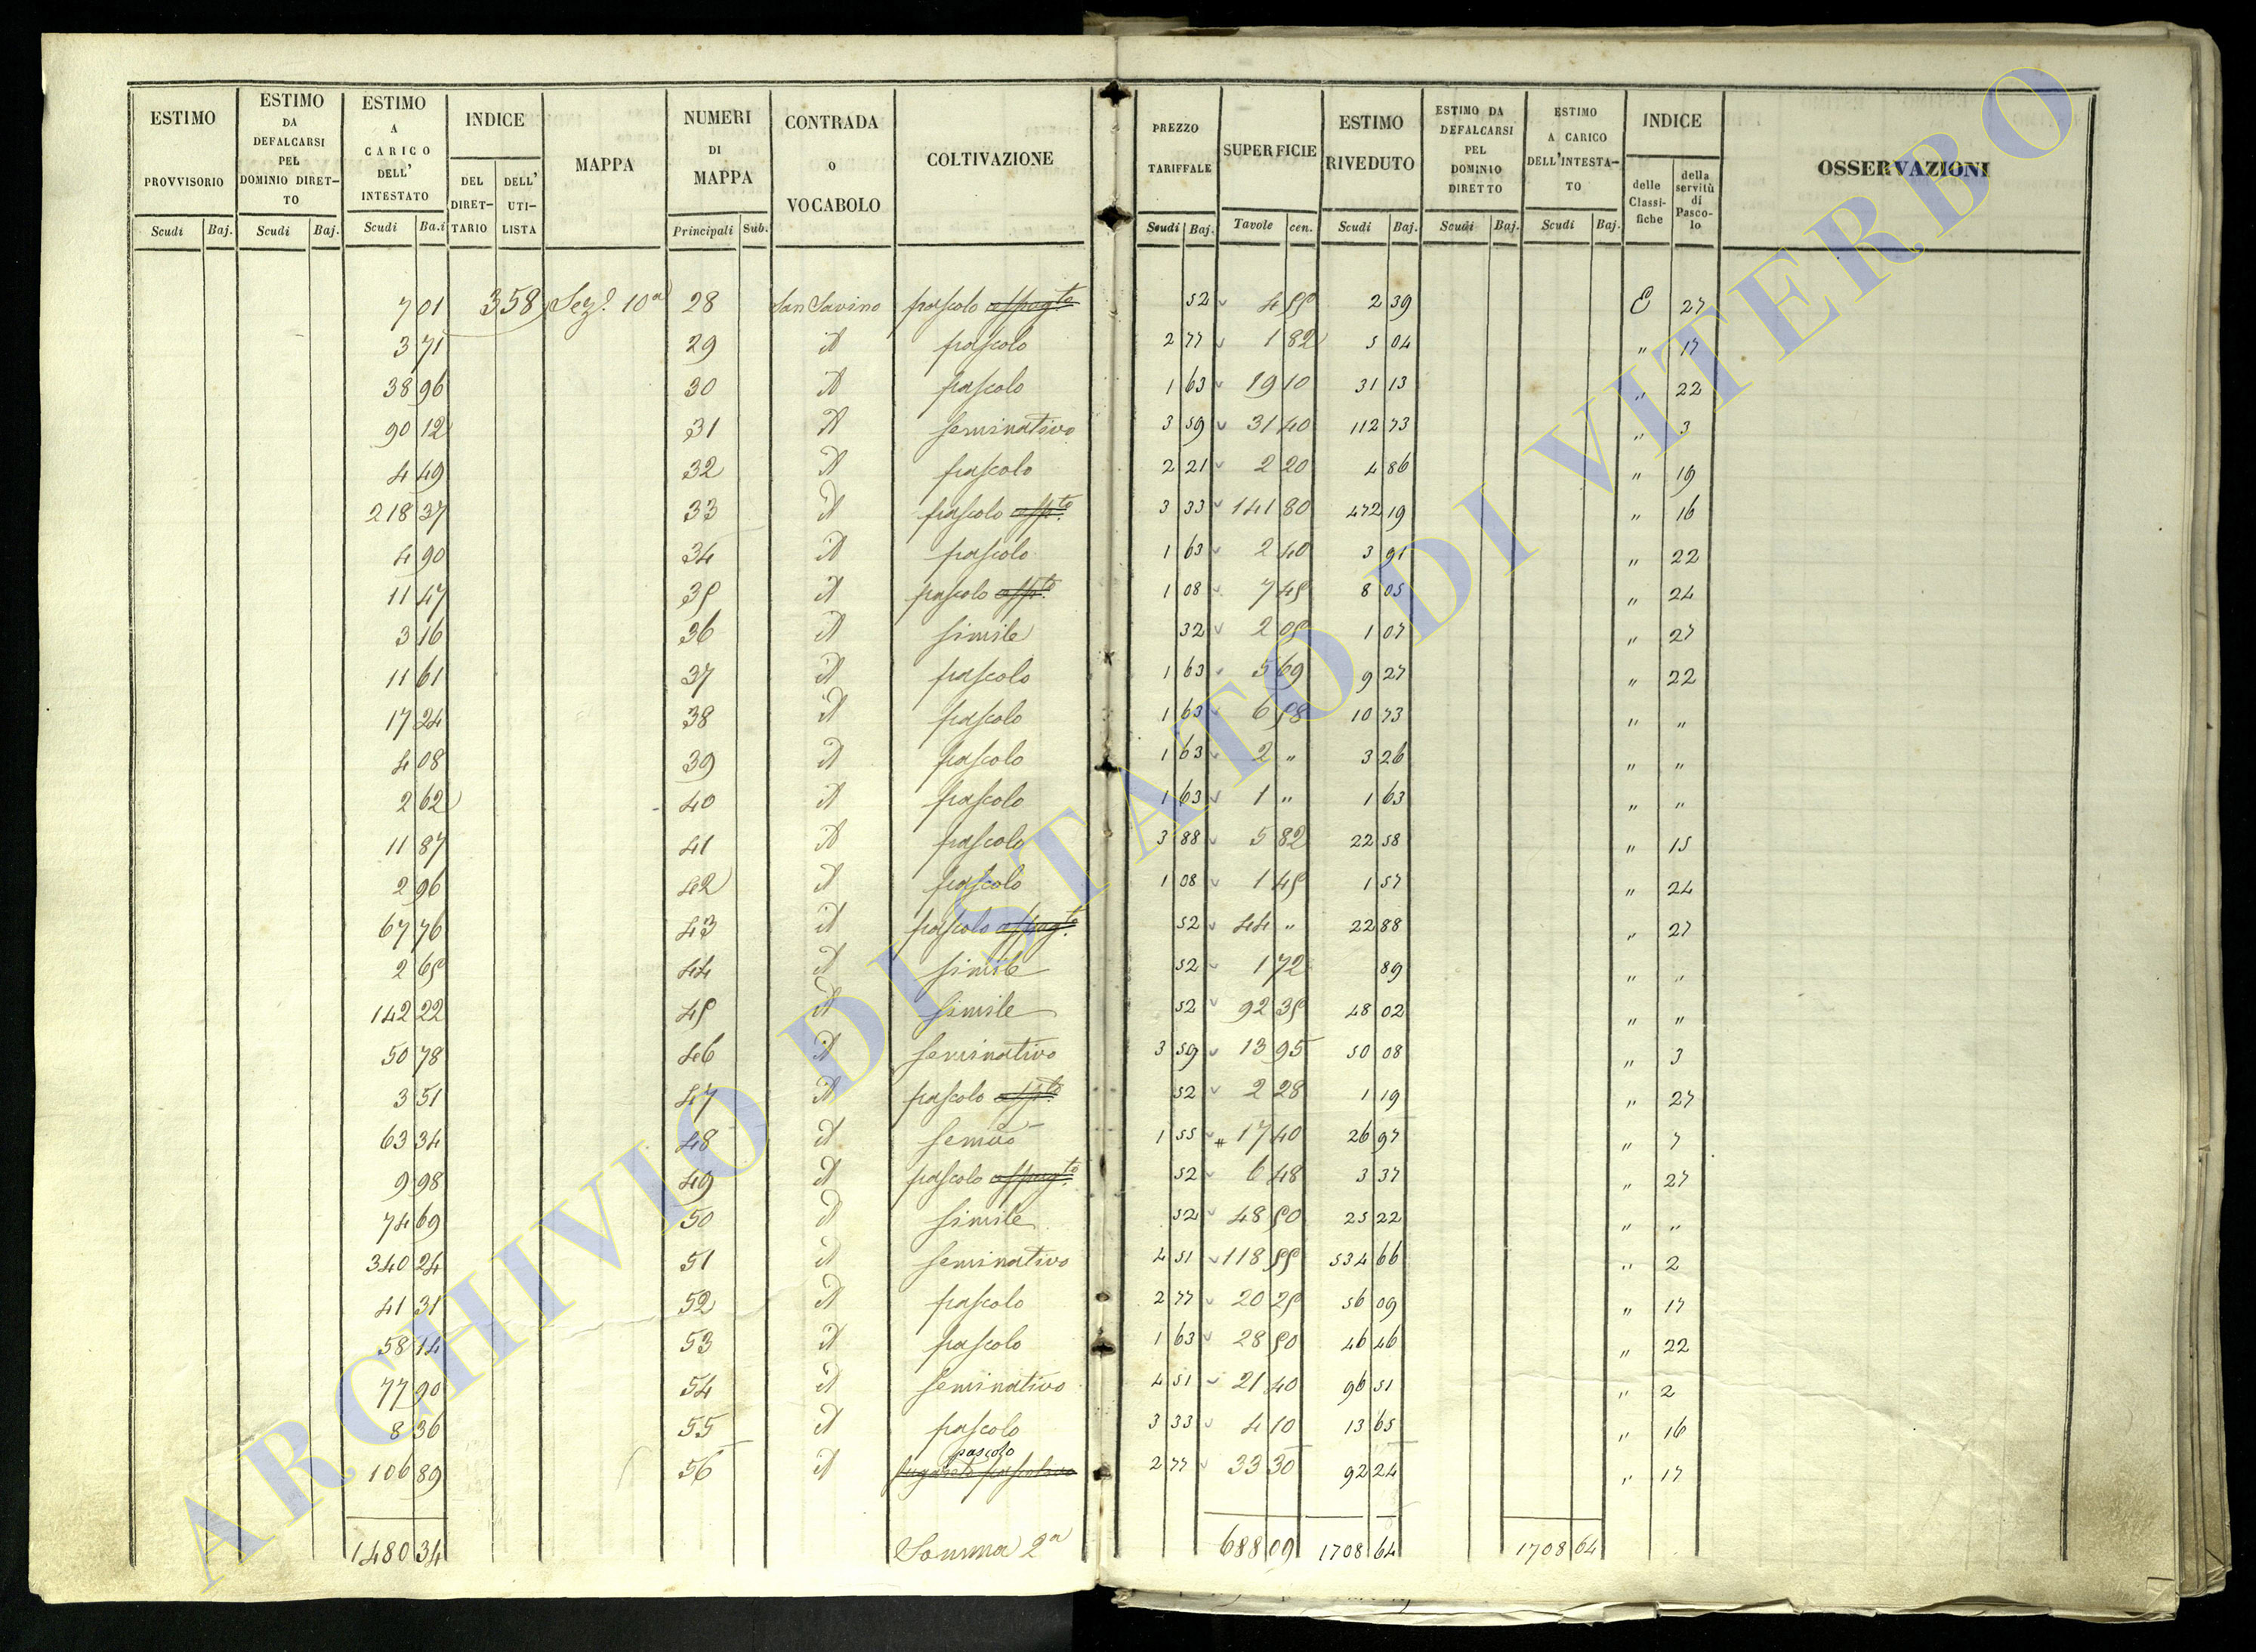 ESTIMO PROVVISORIO | ESTIMO DA DEFALCARSI PEL DOMINIO DIRET-TO | ESTIMO A CARICO DELL' INTESTATO | INDICE | MAPPA | NUMERI DI MAPPA | CONTRADA O VOCABOLO | COLTIVAZIONE | PREZZO TARIFFALE | SUPERFICIE | ESTIMO RIVEDUTO | ESTIMO DA DEFALCARSI PEL DOMINIO DIRETTO | ESTIMO A CARICO DELL'INTESTA-TO | INDICE | OSSERVAZIONI
DEL DIRET-TARIO | DELL' UTI-LISTA | delle Classi-fiche | della servitù di Pasco-lo
Scudi | Baj. | Scudi | Baj. | Scudi | Ba.i | Principali | Sub. | Scudi | Baj. | Tavole | cen. | Scudi | Baj. | Scudi | Baj. | Scudi | Baj.
7 01 | 358 | Sez.e 10a | 28 | San Savino | pascolo | 52 | 4 55 | 2 39 | E | 27
3 71 | 29 | id | pascolo | 2 77 | 1 82 | 5 04 | " | 17
38 96 | 30 | id | pascolo | 1 63 | 19 10 | 31 13 | " | 22
90 12 | 31 | id | seminativo | 3 59 | 31 40 | 112 73 | " | 3
4 49 | 32 | id | pascolo | 2 21 | 2 20 | 4 86 | " | 19
218 37 | 33 | id | pascolo | 3 33 | 141 80 | 472 19 | " | 16
4 90 | 34 | id | pascolo | 1 63 | 2 40 | 3 91 | " | 22
11 47 | 35 | id | pascolo | 1 08 | 7 45 | 8 05 | " | 24
3 16 | 36 | id | simile | 52 | 2 05 | 1 07 | " | 27
11 61 | 37 | id | pascolo | 1 63 | 5 69 | 9 27 | " | 22
17 24 | 38 | id | pascolo | 1 63 | 6 58 | 10 73 | " | "
4 08 | 39 | id | pascolo | 1 63 | 2 " | 3 26 | " | "
2 62 | 40 | id | pascolo | 1 63 | 1 " | 1 63 | " | "
11 87 | 41 | id | pascolo | 3 88 | 5 82 | 22 58 | " | 15
2 96 | 42 | id | pascolo | 1 08 | 1 45 | 1 57 | " | 24
67 76 | 43 | id | pascolo | 52 | 44 " | 22 88 | " | 27
2 65 | 44 | id | simile | 52 | 1 72 | 89 | " | "
142 22 | 45 | id | simile | 52 | 92 35 | 48 02 | " | "
50 78 | 46 | id | seminativo | 3 59 | 13 95 | 50 08 | " | 3
3 51 | 47 | id | pascolo | 52 | 2 28 | 1 19 | " | 27
63 34 | 48 | id | semivo | 1 55 | # 17 40 | 26 97 | " | 7
9 98 | 49 | id | pascolo | 52 | 6 48 | 3 37 | " | 27
74 69 | 50 | id | simile | 52 | 48 50 | 25 22 | " | "
340 24 | 51 | id | seminativo | 4 51 | 118 55 | 534 66 | " | 2
41 31 | 52 | id | pascolo | 2 77 | 20 25 | 56 09 | " | 17
58 14 | 53 | id | pascolo | 1 63 | 28 50 | 46 46 | " | 22
77 90 | 54 | id | seminativo | 4 51 | 21 40 | 96 51 | " | 2
8 36 | 55 | id | pascolo | 3 33 | 4 10 | 13 65 | " | 16
106 89 | 56 | id | pascolo | 2 77 | 33 30 | 92 24 | " | 17
1480 34 | Somma 2a | 688 09 | 1708 64 | 1708 64
ARCHIVIO DI STATO DI VITERBO